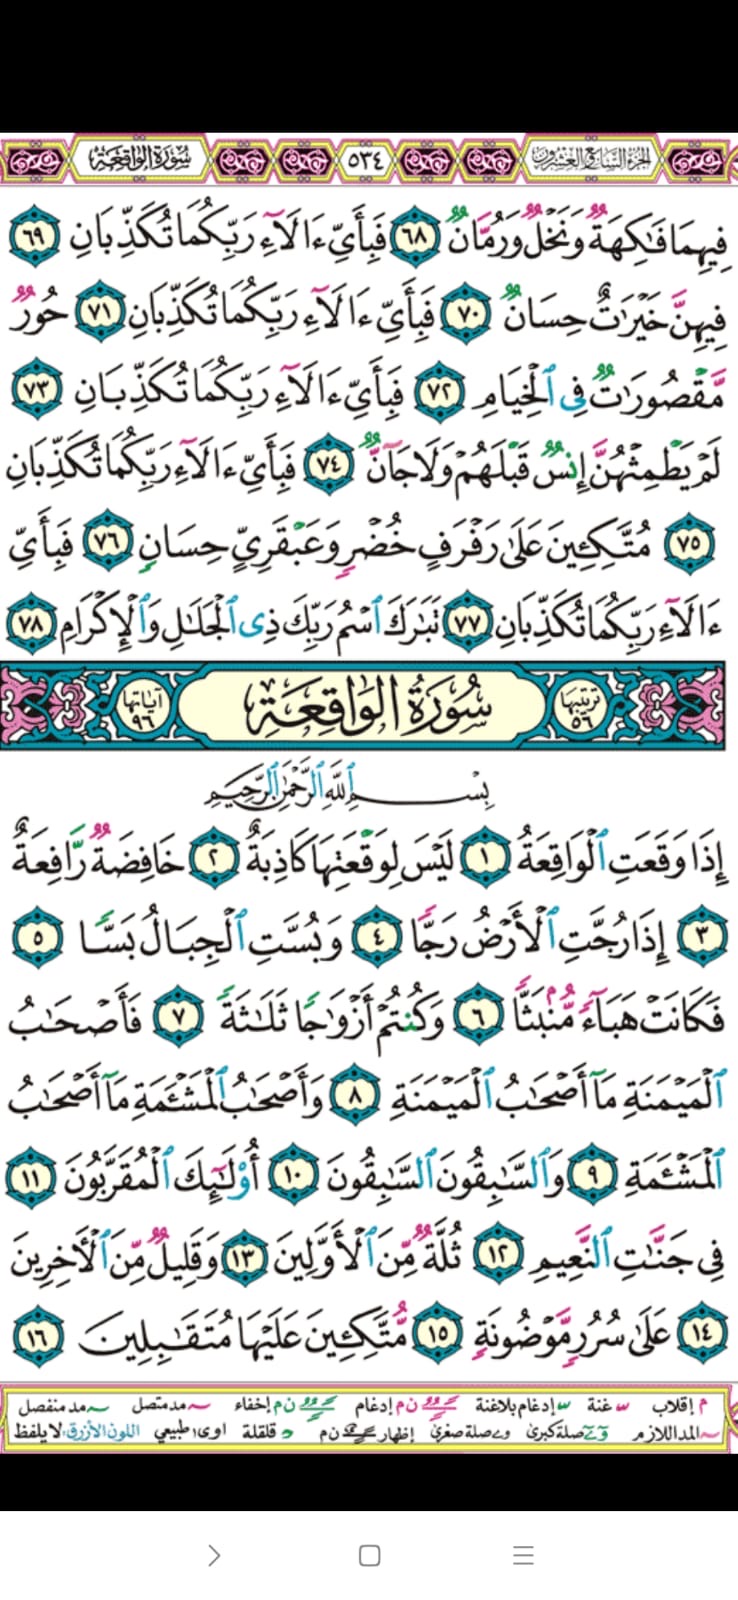 الجزء السابع والعشرون ٥٣٤ سُورَةُ الوَاقِعَة
فِيهِمَا فَٰكِهَةٌ وَنَخۡلٌ وَرُمَّانٌ ٦٨ فَبِأَيِّ ءَالَآءِ رَبِّكُمَا تُكَذِّبَانِ ٦٩
فِيهِنَّ خَيۡرَٰتٌ حِسَانٌ ٧٠ فَبِأَيِّ ءَالَآءِ رَبِّكُمَا تُكَذِّبَانِ ٧١ حُورٌ
مَّقۡصُورَٰتٌ فِي ٱلۡخِيَامِ ٧٢ فَبِأَيِّ ءَالَآءِ رَبِّكُمَا تُكَذِّبَانِ ٧٣
لَمۡ يَطۡمِثۡهُنَّ إِنسٌ قَبۡلَهُمۡ وَلَا جَآنٌّ ٧٤ فَبِأَيِّ ءَالَآءِ رَبِّكُمَا تُكَذِّبَانِ
٧٥ مُتَّكِـِٔينَ عَلَىٰ رَفۡرَفٍ خُضۡرٍ وَعَبۡقَرِيٍّ حِسَانٍ ٧٦ فَبِأَيِّ
ءَالَآءِ رَبِّكُمَا تُكَذِّبَانِ ٧٧ تَبَٰرَكَ ٱسۡمُ رَبِّكَ ذِي ٱلۡجَلَٰلِ وَٱلۡإِكۡرَامِ ٧٨
ترتيبها ٥٦ سُورَةُ الوَاقِعَةِ آياتها ٩٦
بِسۡمِ ٱللَّهِ ٱلرَّحۡمَٰنِ ٱلرَّحِيمِ
إِذَا وَقَعَتِ ٱلۡوَاقِعَةُ ١ لَيۡسَ لِوَقۡعَتِهَا كَاذِبَةٌ ٢ خَافِضَةٌ رَّافِعَةٌ
٣ إِذَا رُجَّتِ ٱلۡأَرۡضُ رَجًّا ٤ وَبُسَّتِ ٱلۡجِبَالُ بَسًّا ٥
فَكَانَتۡ هَبَآءً مُّنۢبَثًّا ٦ وَكُنتُمۡ أَزۡوَٰجًا ثَلَٰثَةً ٧ فَأَصۡحَٰبُ
ٱلۡمَيۡمَنَةِ مَآ أَصۡحَٰبُ ٱلۡمَيۡمَنَةِ ٨ وَأَصۡحَٰبُ ٱلۡمَشۡـَٔمَةِ مَآ أَصۡحَٰبُ
ٱلۡمَشۡـَٔمَةِ ٩ وَٱلسَّٰبِقُونَ ٱلسَّٰبِقُونَ ١٠ أُوْلَٰٓئِكَ ٱلۡمُقَرَّبُونَ ١١
فِي جَنَّٰتِ ٱلنَّعِيمِ ١٢ ثُلَّةٌ مِّنَ ٱلۡأَوَّلِينَ ١٣ وَقَلِيلٌ مِّنَ ٱلۡأٓخِرِينَ
١٤ عَلَىٰ سُرُرٍ مَّوۡضُونَةٍ ١٥ مُّتَّكِـِٔينَ عَلَيۡهَا مُتَقَٰبِلِينَ ١٦
م إقلاب غنة إدغام بلاغنة ن م إدغام ن م إخفاء مد متصل مد منفصل
المد اللازم صلة كبرى صلة صغرى إظهار ن م قلقلة اوى طبيعي اللون الأزرق لا يلفظ